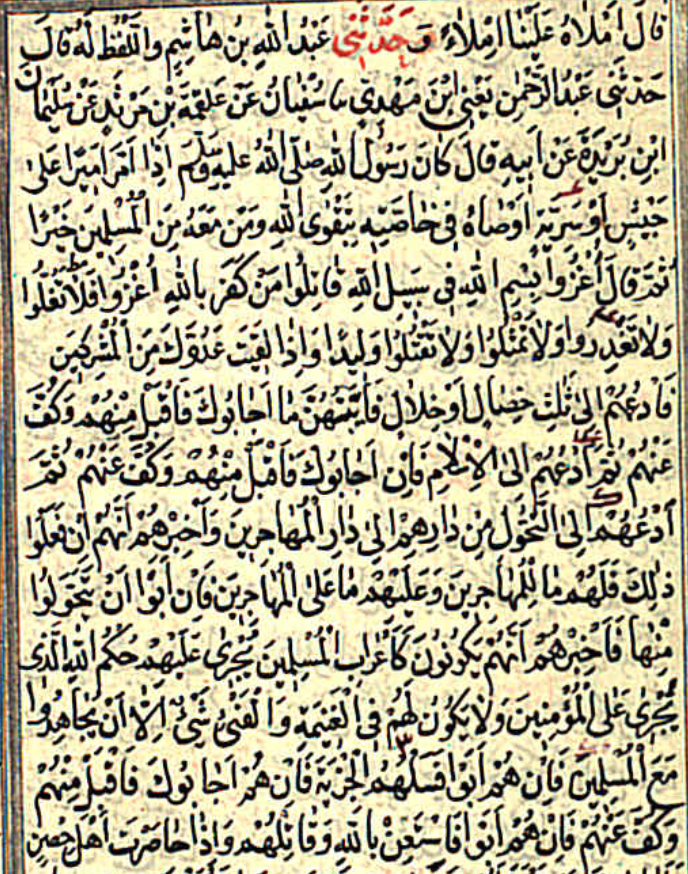 قَالَ اَمْلَاهُ عَلَيْنَا اِمْلَاءً وَحَدَّثَنِى عَبْدُ اللهِ بْنُ هَاشِمٍ وَاللَّفْظُ لَهُ قَالَ
حَدَّثَنِى عَبْدُ الرَّحْمٰنِ يَعْنِى ابْنَ مَهْدِيٍّ نا سُفْيَانُ عَنْ عَلْقَمَةَ بْنِ مَرْثَدٍ عَنْ سُلَيْمَانَ
ابْنِ بُرَيْدَةَ عَنْ اَبِيهِ قَالَ كَانَ رَسُولُ اللهِ صَلَّى اللهُ عَلَيْهِ وَسَلَّمَ اِذَا اَمَّرَ اَمِيرًا عَلَى
جَيْشٍ اَوْ سَرِيَّةٍ اَوْصَاهُ فِى خَاصَّتِهِ بِتَقْوَى اللهِ وَمَنْ مَعَهُ مِنَ الْمُسْلِمِينَ خَيْرًا
ثُمَّ قَالَ اُغْزُوا بِسْمِ اللهِ فِى سَبِيلِ اللهِ قَاتِلُوا مَنْ كَفَرَ بِاللهِ اُغْزُوا فَلَا تَغُلُّوا
وَلَا تَغْدِرُوا وَلَا تُمَثِّلُوا وَلَا تَقْتُلُوا وَلِيدًا وَاِذَا لَقِيتَ عَدُوَّكَ مِنَ الْمُشْرِكِينَ
فَادْعُهُمْ اِلَى ثَلٰثِ خِصَالٍ اَوْ خِلَالٍ فَاَيَّتُهُنَّ مَا اَجَابُوكَ فَاقْبَلْ مِنْهُمْ وَكُفَّ
عَنْهُمْ ثُمَّ ادْعُهُمْ اِلَى الْاِسْلَامِ فَاِنْ اَجَابُوكَ فَاقْبَلْ مِنْهُمْ وَكُفَّ عَنْهُمْ ثُمَّ
ادْعُهُمْ اِلَى التَّحَوُّلِ مِنْ دَارِهِمْ اِلَى دَارِ الْمُهَاجِرِينَ وَاَخْبِرْهُمْ اَنَّهُمْ اِنْ فَعَلُوا
ذٰلِكَ فَلَهُمْ مَا لِلْمُهَاجِرِينَ وَعَلَيْهِمْ مَا عَلَى الْمُهَاجِرِينَ فَاِنْ اَبَوْا اَنْ يَتَحَوَّلُوا
مِنْهَا فَاَخْبِرْهُمْ اَنَّهُمْ يَكُونُونَ كَاَعْرَابِ الْمُسْلِمِينَ يَجْرِى عَلَيْهِمْ حُكْمُ اللهِ الَّذِى
يَجْرِى عَلَى الْمُؤْمِنِينَ وَلَا يَكُونُ لَهُمْ فِى الْغَنِيمَةِ وَالْفَىْءِ شَىْءٌ اِلَّا اَنْ يُجَاهِدُوا
مَعَ الْمُسْلِمِينَ فَاِنْ هُمْ اَبَوْا فَسَلْهُمُ الْجِزْيَةَ فَاِنْ هُمْ اَجَابُوكَ فَاقْبَلْ مِنْهُمْ
وَكُفَّ عَنْهُمْ فَاِنْ هُمْ اَبَوْا فَاسْتَعِنْ بِاللهِ وَقَاتِلْهُمْ وَاِذَا حَاصَرْتَ اَهْلَ حِصْنٍ